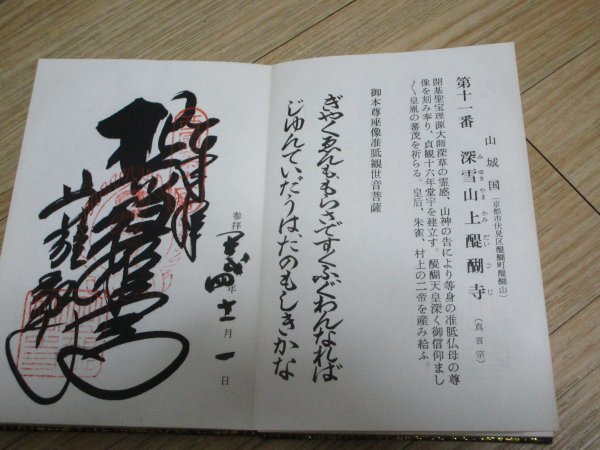 山城国(京都市伏見区醍醐町醍醐山)
第十一番 深雪山上醍醐寺(真言宗)
みゆきやまかみだいごじ
開基聖宝理源大師深草の霊感、山神の告により等身の准胝仏母の尊
像を刻み奉り、貞観十六年堂宇を建立す。醍醐天皇深く御信仰まし
〱皇胤の蕃茂を祈らる。皇后、朱雀、村上の二帝を産み給ふ。
御本尊座像准胝観世音菩薩
ぎやくゑんももらさですくふぐわんなれば
じゆんていだうはたのもしきかな
参拝 年十一月一日
奉拝